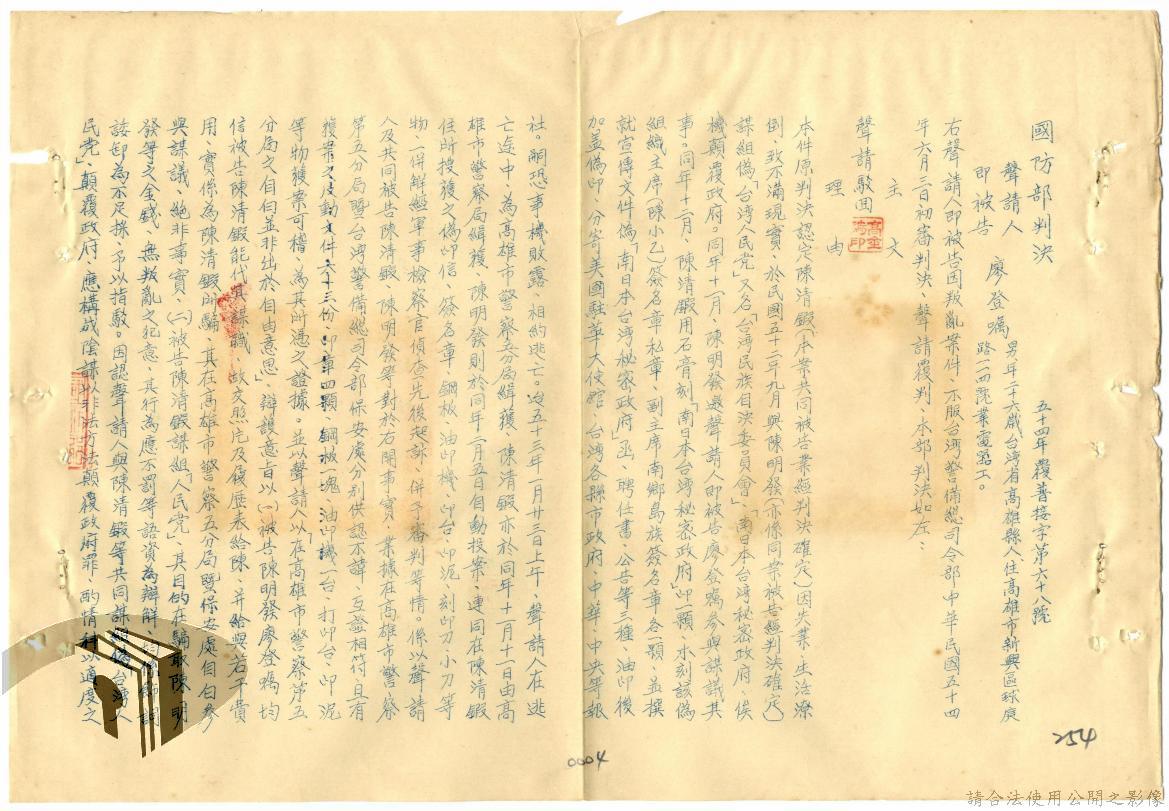 國防部判決
五十四年覆普接字第六十八號
聲請人
即被告 廖登囑 男年二十六歲台湾省高雄縣人住高雄市新興區球庭
路一一四號業電器工。
右聲請人即被告因叛亂案件、不服台湾警备總司令部中華民國五十四
年六月二日初審判决、聲請覆判、本部判決如左:
主文
聲請駁回
理由
本件原判決認定陳清鍛(本案共同被告業經判決確定)因失業、生活潦
倒、致不滿現實、於民國五十二年九月與陳明發(亦係同案被告經判決確定)
謀組偽「台湾人民党」又名「台湾民族自决委員會」、「南日本台湾秘密政府、俟
機顛覆政府。同年十一月、陳明發邀聲請人即被告廖登囑參與謀議其
事。同年十二月、陳清鍛用石膏刻「南日本台湾秘密政府」印一顆、木刻該偽
組織主席(陳小乙)簽名章私章、副主席南鄉島族簽名章各一顆、並撰
就宣傳文件偽「南日本台湾秘密政府」函、聘任書、公告等三種、油印後
加盖偽印、分寄美國駐華大使館、台湾各縣市政府、中華、中央等報
社。嗣恐事機敗露、相約逃亡。迨五十三年一月廿三日上午、聲請人在逃
亡途中、為高雄市警察五分局緝獲、陳清鍛亦於同年十一月十一日由高
雄市警察局緝獲、陳明發則於同年二月五日自動投案、連同在陳清鍛
住所搜獲之偽印信、簽名章、鋼板、油印機、印台、印泥、刻印刀、小刀等
物、一併解經軍事檢察官偵查先後起訴、併予審判等情。係以聲請
人及共同被告陳清鍛、陳明發等對於右開事實、業據在高雄市警察
第五分局暨台湾警備總司令部保安處分别供認不諱、互證相符、且有
獲案之反動文件六十三份、印章四顆、鋼板一塊、油印機一台、打印台、印泥
等物獲案可稽、為其所憑之證據。並以聲請人以「在高雄市警察第五
分局之自白並非出於自由意思」、辯護意旨以(一)被告陳明發廖登囑均
信被告陳清鍛能代其謀職 故交照片及履歷表給陳、并給與若干費
用、實係為陳清鍛所騙、其在高雄市警察五分局暨保安處自白參
與謀議、絕非事實、(二)被告陳清鍛謀組「人民党」其目的在騙取陳明
發等之金錢、無叛亂之犯意、其行為應不罰等語資為辯解、均係飾詞
諉卸為不足採、予以指駁。因認聲請人與陳清鍛等共同謀組偽「台湾人
民党」、顛覆政府、應構成陰謀以非法方法顛覆政府罪、酌情科以適度之
254
0004
請合法使用公開之影像